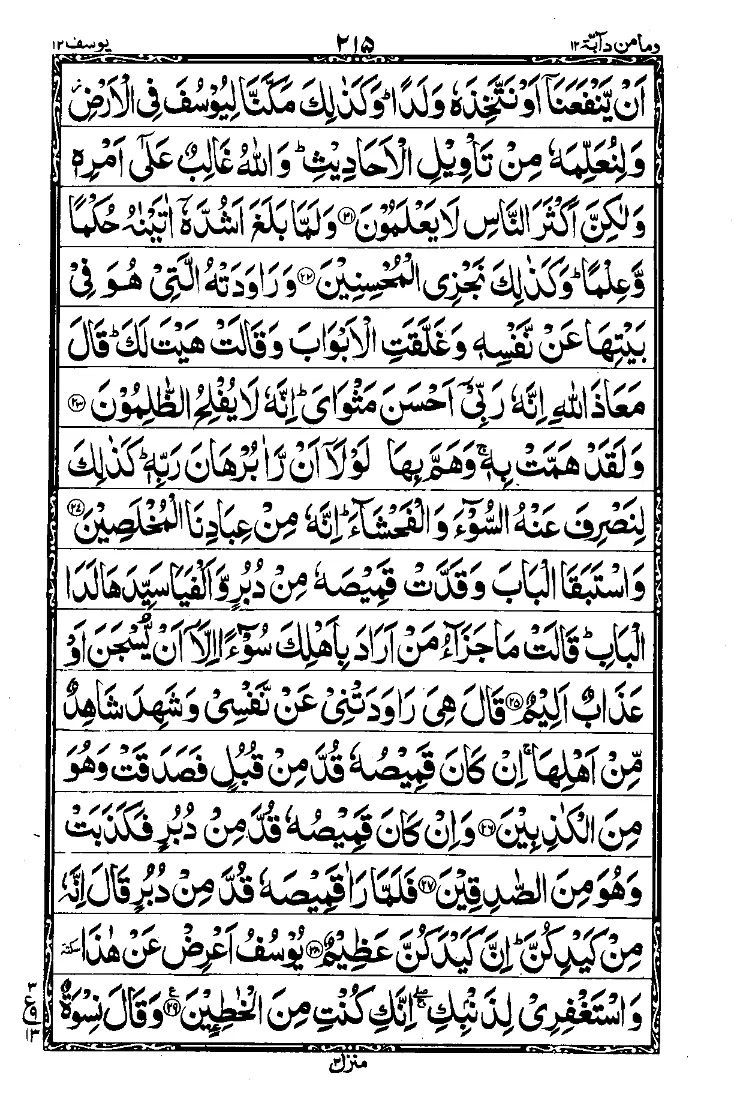 وما من دآبة ۱۲ ۲۱۵ یوسف ۱۲
اَنْ یَّنْفَعَنَاۤ اَوْ نَتَّخِذَهٗ وَلَدًا ؕ وَكَذٰلِكَ مَكَّنَّا لِیُوْسُفَ فِی الْاَرْضِ ز
وَ لِنُعَلِّمَهٗ مِنْ تَاْوِیْلِ الْاَحَادِیْثِ ؕ وَ اللّٰهُ غَالِبٌ عَلٰۤی اَمْرِهٖ
وَ لٰكِنَّ اَكْثَرَ النَّاسِ لَا یَعْلَمُوْنَ ﴿۲۱﴾ وَ لَمَّا بَلَغَ اَشُدَّهٗۤ اٰتَیْنٰهُ حُكْمًا
وَّ عِلْمًا ؕ وَ كَذٰلِكَ نَجْزِی الْمُحْسِنِیْنَ ﴿۲۲﴾ وَ رَاوَدَتْهُ الَّتِیْ هُوَ فِیْ
بَیْتِهَا عَنْ نَّفْسِهٖ وَ غَلَّقَتِ الْاَبْوَابَ وَ قَالَتْ هَیْتَ لَكَ ؕ قَالَ
مَعَاذَ اللّٰهِ اِنَّهٗ رَبِّیْۤ اَحْسَنَ مَثْوَایَ ؕ اِنَّهٗ لَا یُفْلِحُ الظّٰلِمُوْنَ ﴿۲۳﴾
وَ لَقَدْ هَمَّتْ بِهٖ ۚ وَ هَمَّ بِهَا لَوْ لَاۤ اَنْ رَّاٰ بُرْهَانَ رَبِّهٖ ؕ كَذٰلِكَ
لِنَصْرِفَ عَنْهُ السُّوْٓءَ وَ الْفَحْشَآءَ ؕ اِنَّهٗ مِنْ عِبَادِنَا الْمُخْلَصِیْنَ ﴿۲۴﴾
وَ اسْتَبَقَا الْبَابَ وَ قَدَّتْ قَمِیْصَهٗ مِنْ دُبُرٍ وَّ اَلْفَیَا سَیِّدَهَا لَدَا
الْبَابِ ؕ قَالَتْ مَا جَزَآءُ مَنْ اَرَادَ بِاَهْلِكَ سُوْٓءًا اِلَّاۤ اَنْ یُّسْجَنَ اَوْ
عَذَابٌ اَلِیْمٌ ﴿۲۵﴾ قَالَ هِیَ رَاوَدَتْنِیْ عَنْ نَّفْسِیْ وَ شَهِدَ شَاهِدٌ
مِّنْ اَهْلِهَا ۚ اِنْ كَانَ قَمِیْصُهٗ قُدَّ مِنْ قُبُلٍ فَصَدَقَتْ وَ هُوَ
مِنَ الْكٰذِبِیْنَ ﴿۲۶﴾ وَ اِنْ كَانَ قَمِیْصُهٗ قُدَّ مِنْ دُبُرٍ فَكَذَبَتْ
وَ هُوَ مِنَ الصّٰدِقِیْنَ ﴿۲۷﴾ فَلَمَّا رَاٰ قَمِیْصَهٗ قُدَّ مِنْ دُبُرٍ قَالَ اِنَّهٗ
مِنْ كَیْدِكُنَّ ؕ اِنَّ كَیْدَكُنَّ عَظِیْمٌ ﴿۲۸﴾ یُوْسُفُ اَعْرِضْ عَنْ هٰذَا سكتة
وَ اسْتَغْفِرِیْ لِذَنْۢبِكِ ۖۚ اِنَّكِ كُنْتِ مِنَ الْخٰطِـِٕیْنَ ﴿۲۹﴾ ع وَ قَالَ نِسْوَةٌ
۳
ع
۹
۱۳
منزل ۳